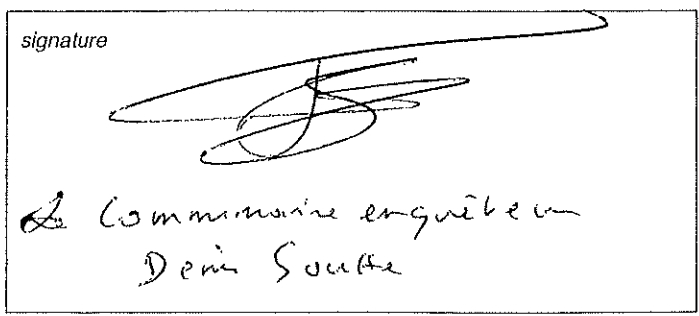 signature
Le Commissaire enquêteur
Denis